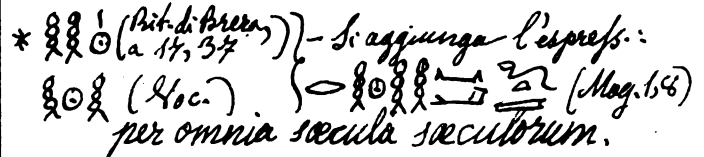 * 𓎛𓎛𓇳𓏤 (Rit. di Brera,
a 17, 37) – Si aggiunga l'espress.:
𓎛𓇳𓎛 (Voc.) 𓂋𓎛𓇳𓎛𓎛 (Mag. 1,8)
per omnia sæcula sæculorum.